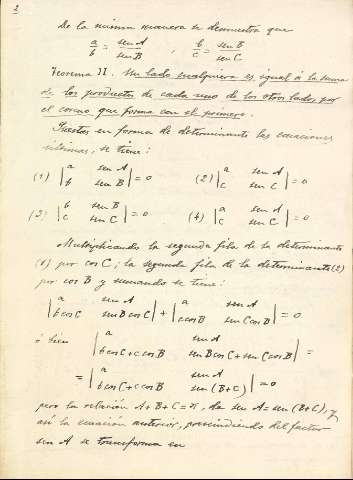 2
De la misma manera se demuestra que
a/b = sen A/sen B , b/c = sen B/sen C
Teorema II. Un lado cualquiera es igual á la suma
de los productos de cada uno de los otros lados por
el coseno que forma con el primero.
Puestas en forma de determinante las ecuaciones
últimas, se tiene:
(1) | a sen A b sen B | = 0 (2) | a sen A c sen C | = 0
(3) | b sen B c sen C | = 0 (4) | a sen A c sen C | = 0
Multiplicando la segunda fila de la determinante
(1) por cos C; la segunda fila de la determinante (2)
por cos B y sumando se tiene:
| a sen A b cos C sen B cos C | + | a sen A c cos B sen C cos B | = 0
ó bien | a sen A b cos C + c cos B sen B cos C + sen C cos B | =
= | a sen A b cos C + c cos B sen (B+C) | = 0
pero la relación A + B + C = π, da sen A = sen (B+C), y
así la ecuación anterior, prescindiendo del factor
sen A se transforma en